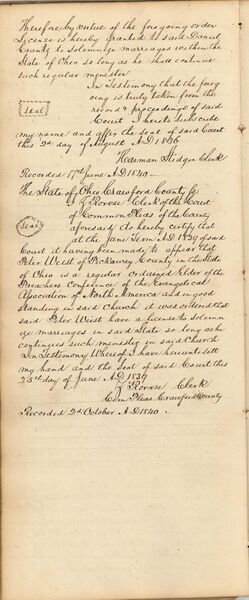 Therefore by virtue of the foregoing order
License is hereby granted to said Daniel
County to Solemnize marriages within the
State of Ohio so long as he shall continue
such regular minister
In Testimony that the fore
going is truly taken from the
Seal
record & proceedings of said
Court I hereto subscribe
my name and affix the seal of said Court
this 2d day of August A.D 1836
Harman Stidger Clerk
Recorded 17th June A.D 1840
The State of Ohio Crawford County
I Z Rowse Clerk of the Court
of Common Pleas of the County
Seal
aforesaid do hereby certify that
at the June Term A.D 1839 of said
Court it having been made to appear that
Peter Weist of Pickaway County in the State
of Ohio is a regular ordained Elder of the
Preachers Conference of the Evangelical
Association of North America and in good
standing in said Church it was ordered that
said Peter Weist have a license to solemn
ize marriages in said State so long as he
continues such minister in said Church
In Testimony Whereof I have hereunto sett
my hand and the Seal of said Court this
25th day of June A.D 1839
Z Rowse Clerk
Com Pleas Crawford County
Recorded 2d October A.D 1840.